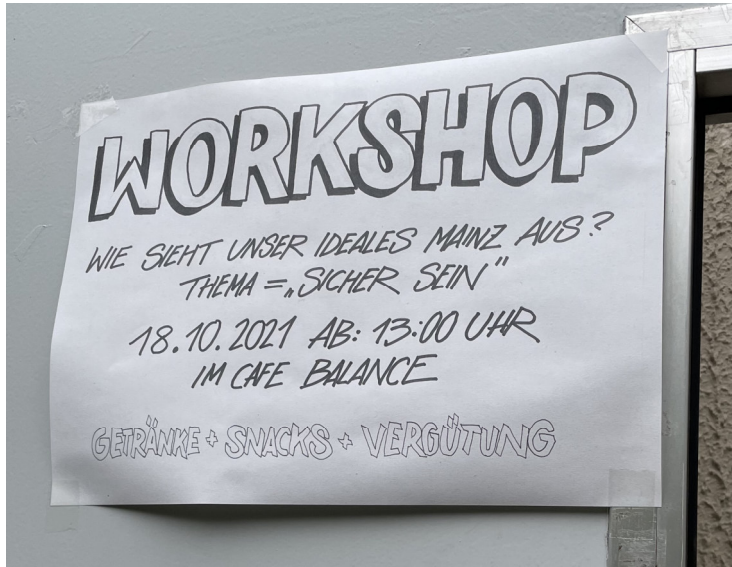 WORKSHOP
WIE SIEHT UNSER IDEALES MAINZ AUS?
THEMA = „SICHER SEIN"
18.10.2021 AB: 13:00 UHR
IM CAFE BALANCE
GETRÄNKE + SNACKS + VERGÜTUNG